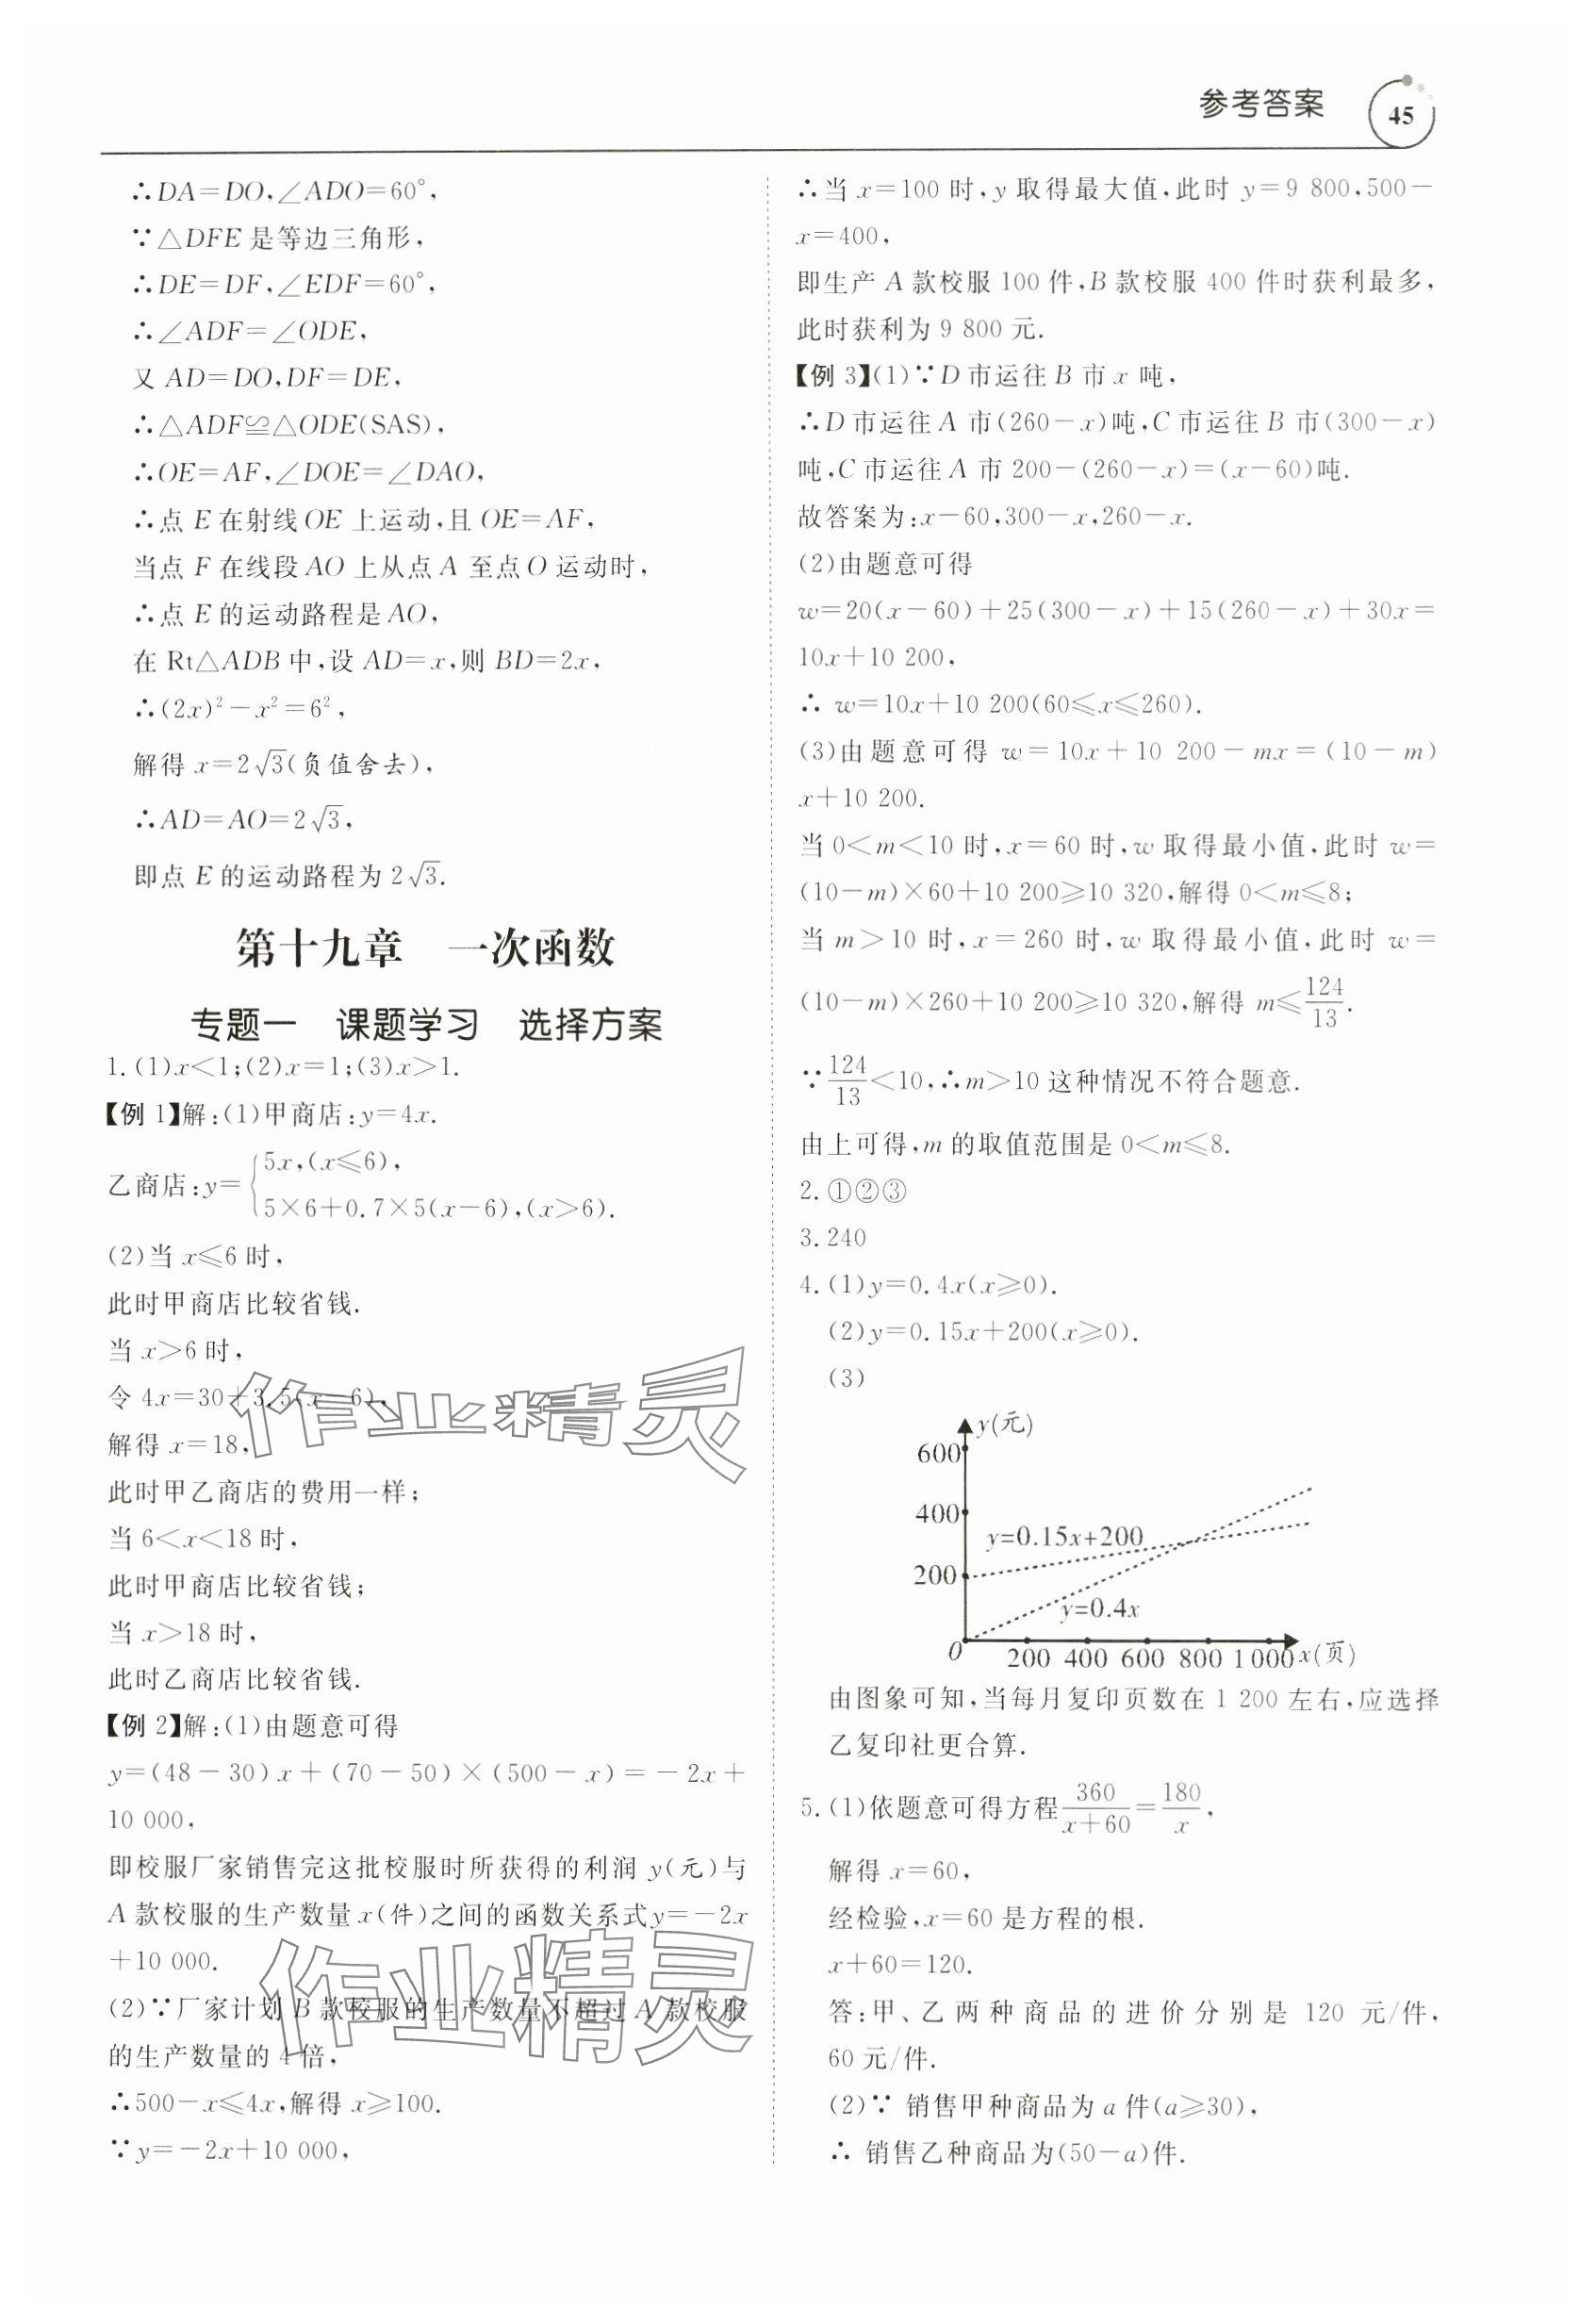 参考答案
45
∴DA=DO,∠ADO=60°,
∵△DFE是等边三角形,
∴DE=DF,∠EDF=60°,
∴∠ADF=∠ODE,
又AD=DO,DF=DE,
∴△ADF≌△ODE(SAS),
∴OE=AF,∠DOE=∠DAO,
∴点E在射线OE上运动,且OE=AF,
当点F在线段AO上从点A至点O运动时,
∴点E的运动路程是AO,
在Rt△ADB中,设AD=x,则BD=2x,
∴(2x)²-x²=6²,
解得x=2√3(负值舍去),
∴AD=AO=2√3,
即点E的运动路程为2√3.
第十九章 一次函数
专题一 课题学习 选择方案
1.(1)x<1;(2)x=1;(3)x>1.
【例1】解:(1)甲商店:y=4x.
乙商店:y={5x,(x≤6),
5×6+0.7×5(x-6),(x>6).
(2)当x≤6时,
此时甲商店比较省钱.
当x>6时,
令4x=30+3.5(x-6),
解得x=18,
此时甲乙商店的费用一样;
当6<x<18时,
此时甲商店比较省钱;
当x>18时,
此时乙商店比较省钱.
【例2】解:(1)由题意可得
y=(48-30)x+(70-50)×(500-x)=-2x+
10 000,
即校服厂家销售完这批校服时所获得的利润y(元)与
A款校服的生产数量x(件)之间的函数关系式y=-2x
+10 000.
(2)∵厂家计划B款校服的生产数量不超过A款校服
的生产数量的4倍,
∴500-x≤4x,解得x≥100.
∵y=-2x+10 000,
∴当x=100时,y取得最大值,此时y=9 800,500-
x=400,
即生产A款校服100件,B款校服400件时获利最多,
此时获利为9 800元.
【例3】(1)∵D市运往B市x吨,
∴D市运往A市(260-x)吨,C市运往B市(300-x)
吨,C市运往A市200-(260-x)=(x-60)吨.
故答案为:x-60,300-x,260-x.
(2)由题意可得
w=20(x-60)+25(300-x)+15(260-x)+30x=
10x+10 200,
∴ w=10x+10 200(60≤x≤260).
(3)由题意可得w=10x+10 200-mx=(10-m)
x+10 200.
当0<m<10时,x=60时,w取得最小值,此时w=
(10-m)×60+10 200≥10 320,解得0<m≤8;
当m>10时,x=260时,w取得最小值,此时w=
(10-m)×260+10 200≥10 320,解得m≤124/13.
∵124/13<10,∴m>10这种情况不符合题意.
由上可得,m的取值范围是0<m≤8.
2.①②③
3.240
4.(1)y=0.4x(x≥0).
(2)y=0.15x+200(x≥0).
(3)
y(元)
600
400
y=0.15x+200
200
y=0.4x
O 200 400 600 800 1 000 x(页)
由图象可知,当每月复印页数在1 200左右,应选择
乙复印社更合算.
5.(1)依题意可得方程360/(x+60)=180/x,
解得x=60,
经检验,x=60是方程的根.
x+60=120.
答:甲、乙两种商品的进价分别是120元/件,
60元/件.
(2)∵ 销售甲种商品为a件(a≥30),
∴ 销售乙种商品为(50-a)件.
作业精灵
作业精灵